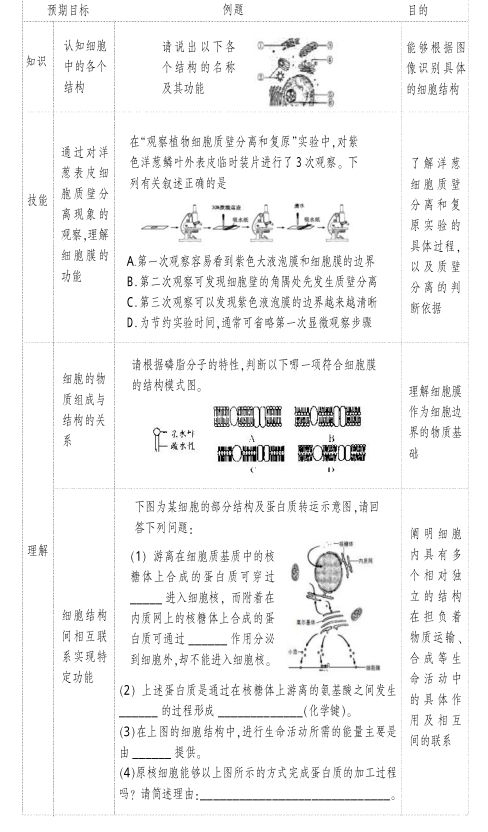 预期目标 例题 目的
知识
认知细胞
中的各个
结构
请说出以下各
个结构的名称
及其功能
能够根据图
像识别具体
的细胞结构
技能
通过对洋
葱表皮细
胞质壁分
离现象的
观察,理解
细胞膜的
功能
在“观察植物细胞质壁分离和复原”实验中,对紫
色洋葱鳞叶外表皮临时装片进行了 3 次观察。下
列有关叙述正确的是
吸水纸 吸水纸
A.第一次观察容易看到紫色大液泡膜和细胞膜的边界
B.第二次观察可发现细胞壁的角隅处先发生质壁分离
C.第三次观察可以发现紫色液泡膜的边界越来越清晰
D.为节约实验时间,通常可省略第一次显微观察步骤
了解洋葱
细胞质壁
分离和复
原实验的
具体过程,
以及质壁
分离的判
断依据
理解
细胞的物
质组成与
结构的关
系
请根据磷脂分子的特性,判断以下哪一项符合细胞膜
的结构模式图。
亲水性
疏水性
A B
C D
理解细胞膜
作为细胞边
界的物质基
础
细胞结构
间相互联
系实现特
定功能
下图为某细胞的部分结构及蛋白质转运示意图,请回
答下列问题:
(1) 游离在细胞质基质中的核
糖体上合成的蛋白质可穿过
_____ 进入细胞核, 而附着在
内质网上的核糖体上合成的蛋
白质可通过 ______ 作用分泌
到细胞外,却不能进入细胞核。
核糖体
内质网
高尔基体
(2) 上述蛋白质是通过在核糖体上游离的氨基酸之间发生
______ 的过程形成 ______________(化学键)。
(3)在上图的细胞结构中,进行生命活动所需的能量主要是
由 ______ 提供。
(4)原核细胞能够以上图所示的方式完成蛋白质的加工过程
吗? 请简述理由:______________________________。
阐明细胞
内具有多
个相对独
立的结构
在担负着
物质运输、
合成等生
命活动中
的具体作
用及相互
间的联系